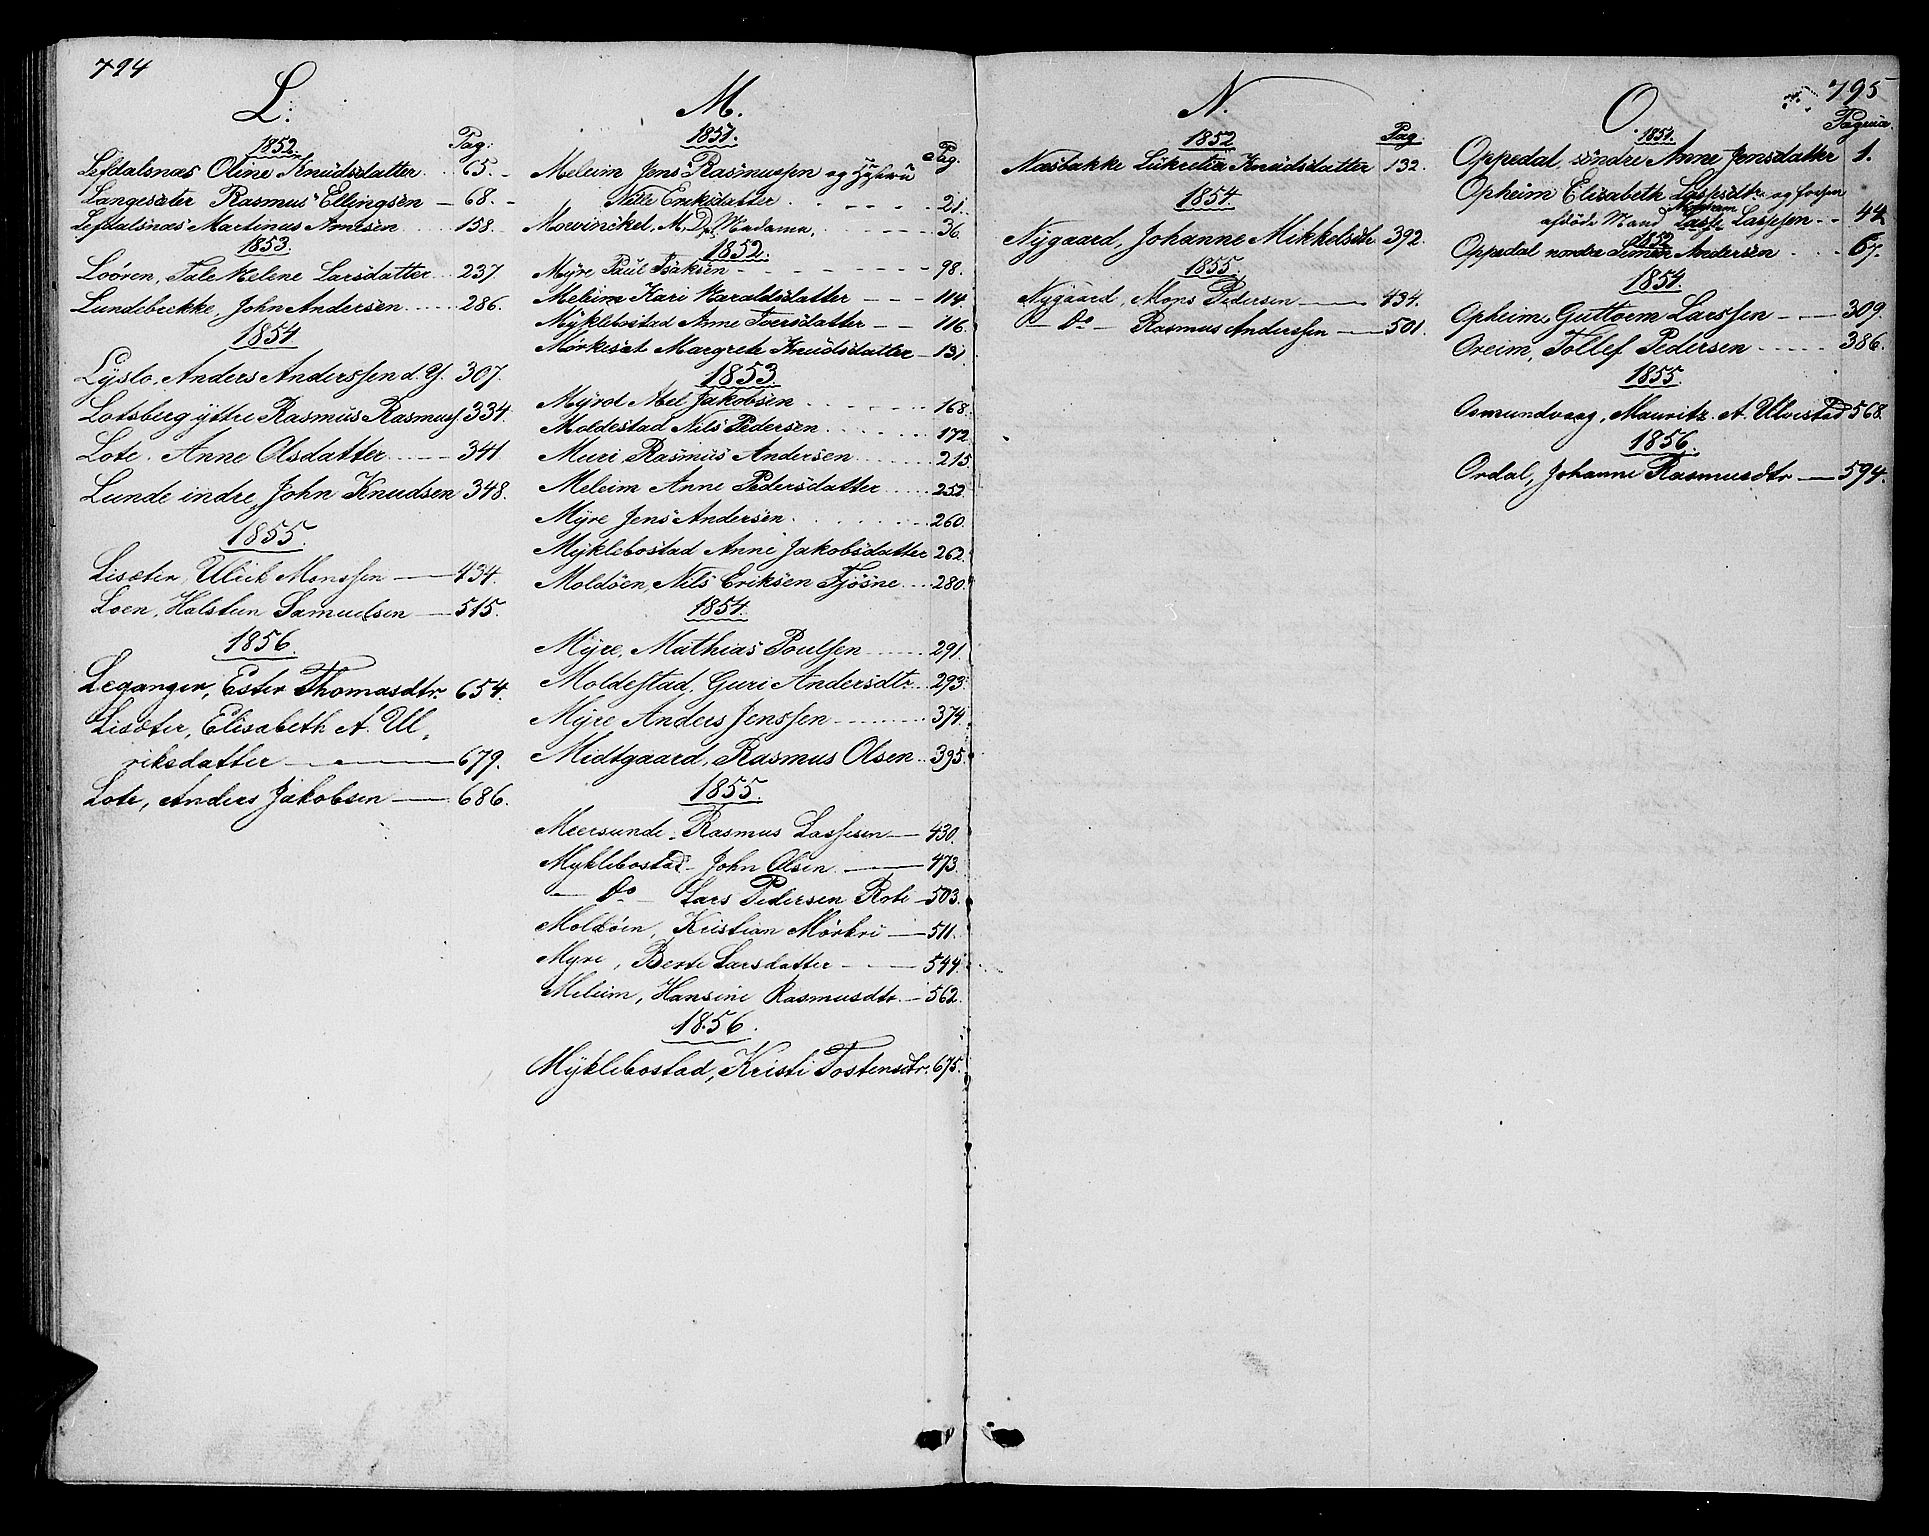 794
L.
1852. Pag:
Lefdalsnæs Oline Knüdsdatter 65.
Langesæter Rasmus Ellingsen 68.
Lefdalsnæs Martinus Arnesen 158.
1853.
Loøren, Tale Helene Larsdatter 237
Lundebrekke, John Andersen 286.
1854
Lyslo, Anders Anderssen d. y. 307.
Lotsberg yttre Rasmus Rasmuss. 334
Lote. Anne Olsdatter 341
Lunde indre, John Knudsen 348.
1855.
Lisæter, Ulick Monssen 434.
Loen, Halsten Samuelsen 515.
1856.
Leganger, Ester Thomasdtr. 654.
Lisæter, Elisabeth A. Ul-
riksdatter 679.
Lote, Anders Jakobsen 686.
M.
1851. Pag.
Meleim Jens Rasmussen og Hustru
Nille Eriksdatter 21.
Mowinckel, M, D, Madama, 36.
1852.
Myre Paul Isaksen 98.
Meleim Kari Haraldsdatter 114
Myklebostad Anne Iversdatter 116.
Mørkeset Margrete Knüdsdatter 131
1853.
Myrod Abel Jakobsen 168.
Moldestad Nils Pedersen 172.
Muri Rasmus Andersen 215
Meleim Anne Pedersdatter 252
Myre Jens Andersen 260.
Myklebostad Anne Jakobsdatter 262.
Moldøen, Nils Eriksen Fjøsne 280.
1854.
Myre, Mathias Poulssen 291.
Moldestad, Guri Andersdtr. 293.
Myre Anders Jenssen 374.
Midtgaard, Rasmus Olsen 395.
1855.
Meersunde, Rasmus Lassesen 430.
Myklebostad John Olsen 473.
— Do — Lars Pedersen Rote 503.
Moldøen, Kristian Mørkri 511.
Myre, Berte Larsdatter 544.
Meleim, Hansine Rasmusdtr. 562.
1856.
Myklebostad, Kristi Tostensdtr. 675.
N.
1852 Pag.
Næsbakke Lükretia Knüdsdatter 132.
1854.
Nygaard, Johanne Mikkelsdtr 392.
1855.
Nygaard, Mons Pedersen 434.
— Do — Rasmus Anderssen 501.
795
O.
1851. Pagina.
Oppedal, søndre Anne Jensdatter 1.
Opheim Elisabeth Lassesdtr. og forhen
afdøde Mand Lasse Lassesen 44
1852.
Oppedal nordre Simon Andersen 67.
1854.
Opheim, Guttorm Larssen 309.
Oreim, Tollef Pedersen 386.
1855.
Osmundvaag, Mauritz. A. Ulvestad 568.
1856.
Ordal, Johanne Rasmusdtr 594.